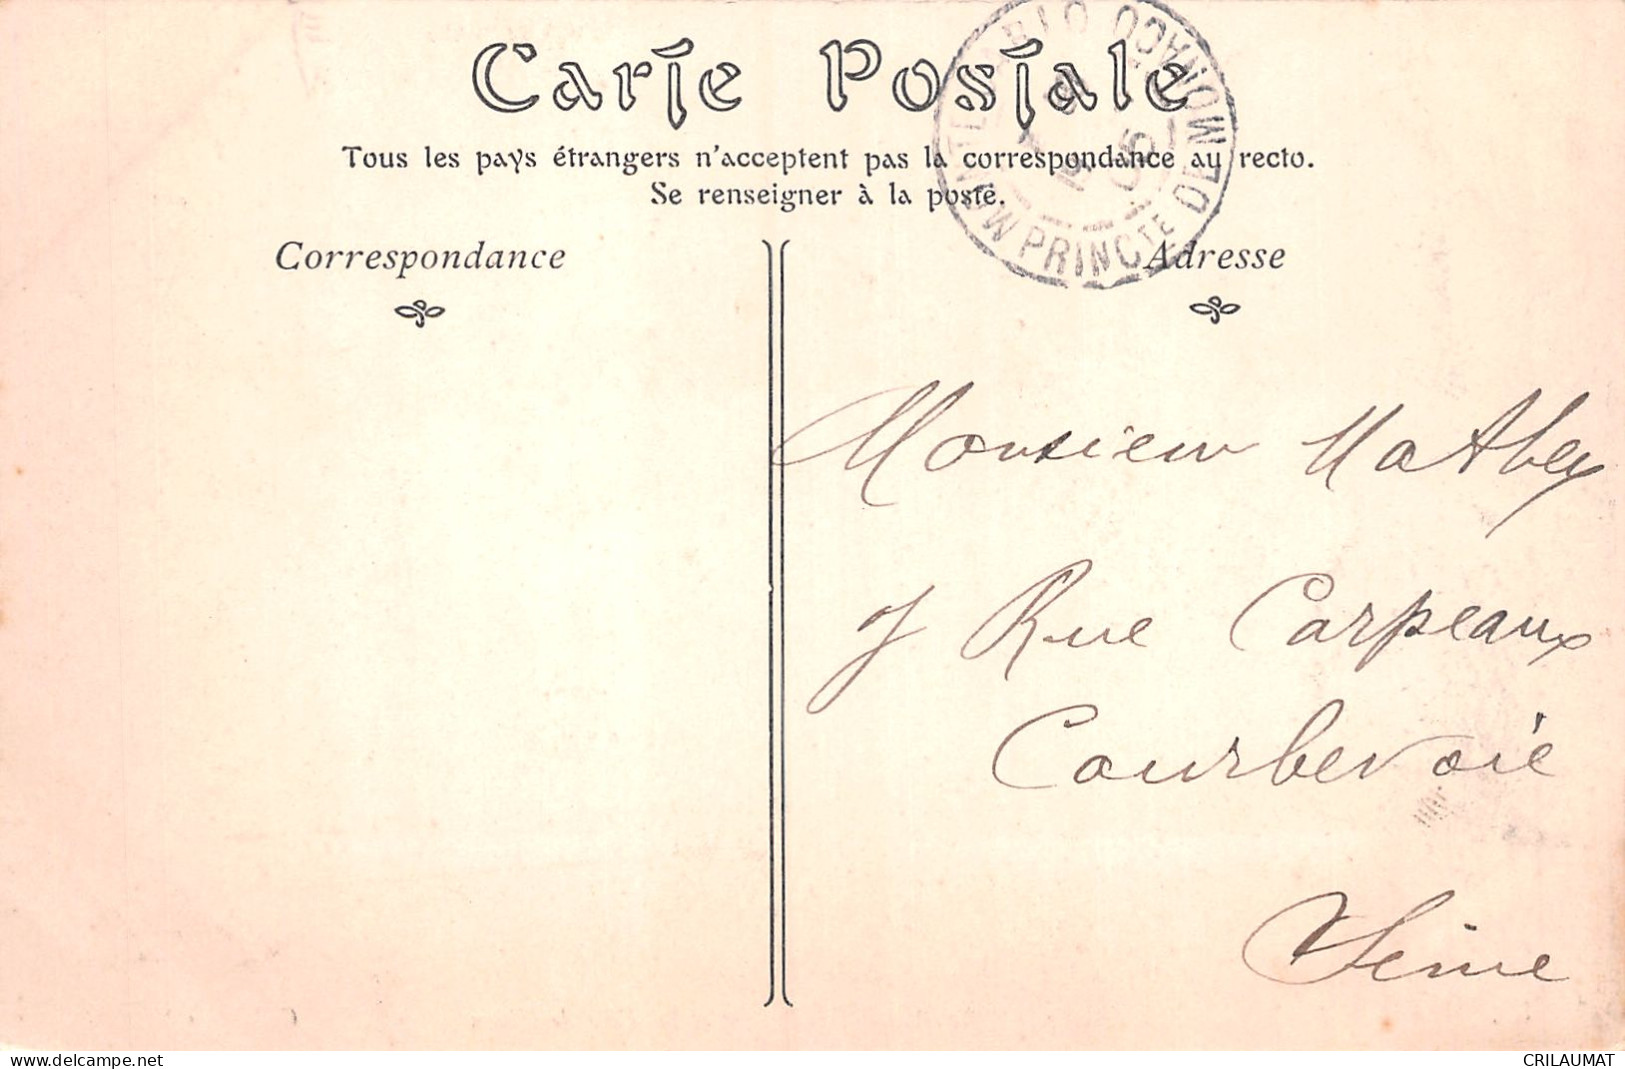 Carte Postale
Tous les pays étrangers n'acceptent pas la correspondance au recto.
Se renseigner à la poste.
Correspondance
Adresse
MONTE-CARLO
PRINCTE DE MONACO
Monsieur Mathey
7 Rue Carpeaux
Courbevoie
Seine
www.delcampe.net
CRILAUMAT